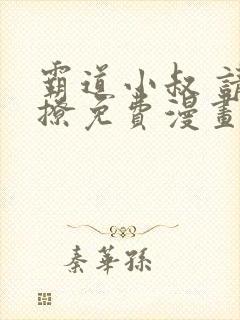 霸道小叔 請
撩免費漫畫
秦華孫